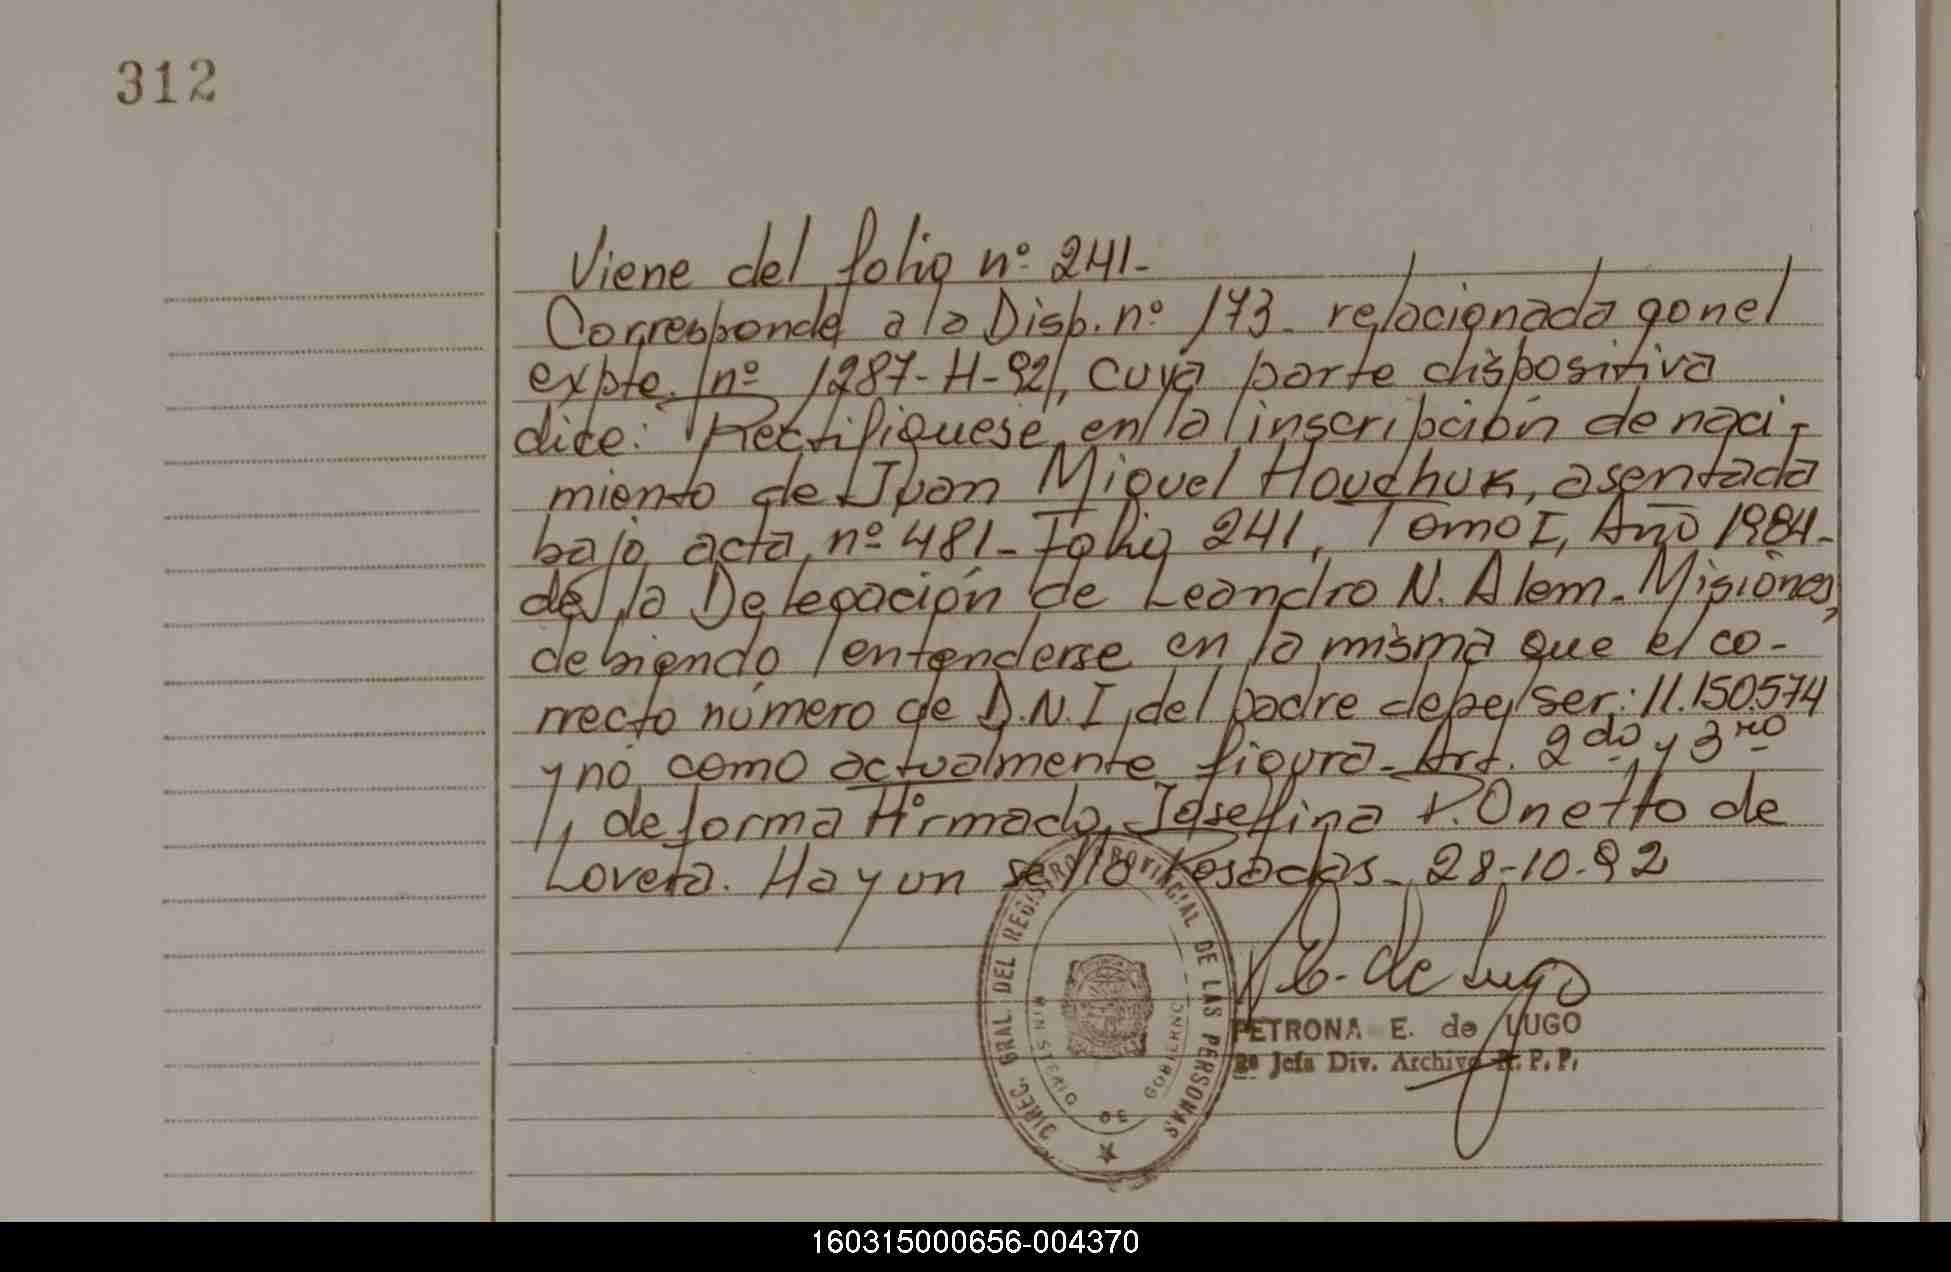 312
Viene del folio nº 241-
Corresponde a la Disp. nº 173- relacionada con el
expte. nº 1287-H-92, cuya parte dispositiva
dice: Rectifiquese en la inscripción de naci-
miento de Juan Miguel Houchuk, asentada
bajo acta nº 481- Folio 241, Tomo I, Año 1984-
de la Delegación de Leandro N. Alem- Misiones,
debiendo entenderse en la misma que el co-
rrecto número de D.N.I, del padre debe ser: 11.150.574
y no como actualmente figura- Art. 2do, y 3ro
de forma Firmado, Josefina P. Onetto de
Lovera. Hay un sello Posadas- 28-10-92
P.E. de Lugo
PETRONA E. de LUGO
2ª Jefa Div. Archivo R.P.P.
DIREC. GRAL. DEL REGISTRO PROVINCIAL DE LAS PERSONAS
MINISTERIO DE GOBIERNO
160315000656-004370